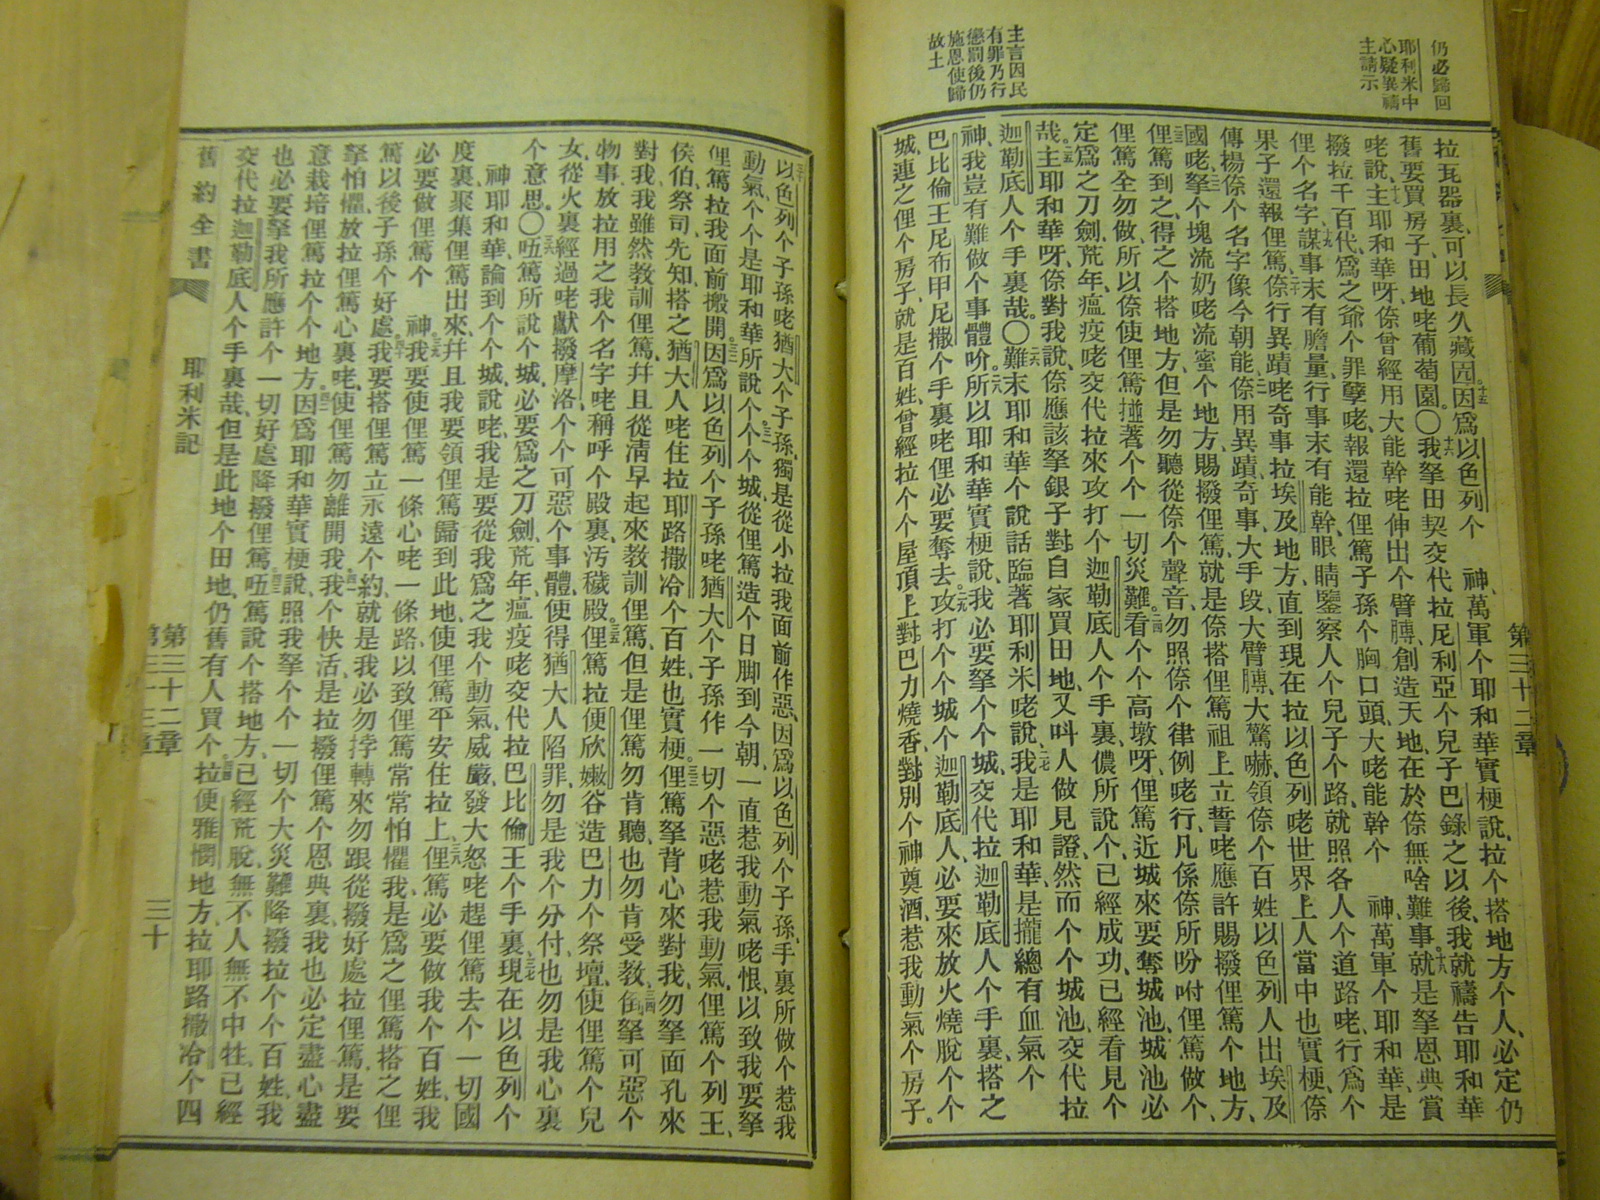 仍必歸回
耶利米中
心疑異禱
主請示
主言因民
有罪乃行
懲罰後仍
施恩使歸
故土
第三十二章
拉瓦器裏、可以長久藏囥、十五因爲以色列个　神、萬軍个耶和華實梗說、拉个搭地方个人、必定仍
舊要買房子、田地咾葡萄園。〇十六我拏田契交代拉尼利亞个兒子巴錄之以後、我就禱告耶和華
咾說、十七主耶和華呀、倷曾經用大能幹咾伸出个臂膊、創造天地、在於倷無啥難事、十八就是拏恩典賞
撥拉千百代、爲之爺个罪孽咾、報還拉俚篤子孫个胸口頭、大咾能幹个　神、萬軍个耶和華、是
俚个名字、十九謀事末有膽量、行事末有能幹、眼睛鑒察人个兒子个路、就照各人个道路咾、行爲个
果子還報俚篤、二十倷行異蹟咾奇事拉埃及地方、直到現在拉以色列咾世界上人當中也實梗、倷
傳楊倷个名字像今朝能、二一倷用異蹟、奇事、大手段、大臂膊、大驚嚇、領倷个百姓以色列人出埃及
國咾、二二拏个塊流奶咾流蜜个地方、賜撥俚篤、就是倷搭俚篤祖上立誓咾應許賜撥俚篤个地方、
二三俚篤到之、得之个搭地方、但是勿聽從倷个聲音、勿照倷个律例咾行、凡係倷所吩咐俚篤做个、
俚篤全勿做、所以倷使俚篤搪著个个一切災難、二四看个个高墩呀、俚篤近城來要奪城池、城池必
定爲之刀劍、荒年、瘟疫咾交代拉來攻打个迦勒底人个手裏、儂所說个已經成功、已經看見个
哉、二五主耶和華呀、倷對我說、倷應該拏銀子對自家買田地、又呌人做見證、然而个个城池、交代拉
迦勒底人个手裏哉。〇二六難末耶和華个說話臨著耶利米咾說、二七我是耶和華、是攏總有血氣个
神、我豈有難做个事體吤、二八所以耶和華實梗說、我必要拏个个城、交代拉迦勒底人个手裏搭之
巴比倫王尼布甲尼撒个手裏咾、俚必要奪去、二九攻打个个城个迦勒底人、必要來放火燒脫个个
城、連之俚个房子、就是百姓、曾經拉个个屋頂上、對巴力燒香、對別个神奠酒、惹我動氣个房子。
三十以色列个子孫咾猶大个子孫、獨是從小拉我面前作惡、因爲以色列个子孫、手裏所做个惹我
動氣、个个是耶和華所說、三一个个城、從俚篤造个日脚到今朝、一直惹我動氣咾恨、以致我要拏
俚篤拉我面前搬開、三二因爲以色列个子孫咾猶大个子孫作一切个惡咾惹我動氣、俚篤个列王、
侯伯、祭司、先知、搭之猶大人咾住拉耶路撒冷个百姓、也實梗、三三俚篤拏背心來對我、勿拏面孔來
對我、我雖然敎訓俚篤、幷且從淸早起來敎訓俚篤、但是俚篤勿肯聽、也勿肯受敎、三四倒拏可惡个
物事放拉用之我个名字咾稱呼个殿裏、汚穢殿、三五俚篤拉便欣嫩谷造巴力个祭壇、使俚篤个兒
女、從火裏經過咾獻撥摩洛、个个可惡个事體、使得猶大人陷罪、勿是我个分付、也勿是我心裏
个意思。〇三六吥篤所說个城、必要爲之刀劍、荒年、瘟疫咾交代拉巴比倫王个手裏、三七現在以色列个
神耶和華、論到个个城、說咾我是要從我爲之我个動氣、威嚴、發大怒咾趕俚篤去个一切國
度裏、聚集俚篤出來、幷且我要領俚篤歸到此地、使俚篤平安住拉上、三八俚篤必要做我个百姓、我
必要做俚篤个　神、三九我要使俚篤一條心咾一條路、以致俚篤常常怕懼我、是爲之俚篤搭之俚
篤以後子孫个好處、四十我要搭俚篤立永遠个約、就是我必勿捋轉來勿跟從撥好處拉俚篤、是要
拏怕懼、放拉俚篤心裏咾、使俚篤勿離開我、四一我个快活、是拉撥俚篤个恩典裏、我也必定盡心盡
意栽培俚篤拉个个地方、四二因爲耶和華實梗說、照我拏个个一切个大災難降撥拉个个百姓、我
也必要拏我所應許个一切好處、降撥俚篤、四三吥篤說个搭地方、已經荒脫、無不人、無不中牲、已經
交代拉迦勒底人个手裏哉、但是此地个田地、仍舊有人買个、四四拉便雅憫地方、拉耶路撒冷个四
舊約全書
耶利米記
第三十二章
第三十三章
三十